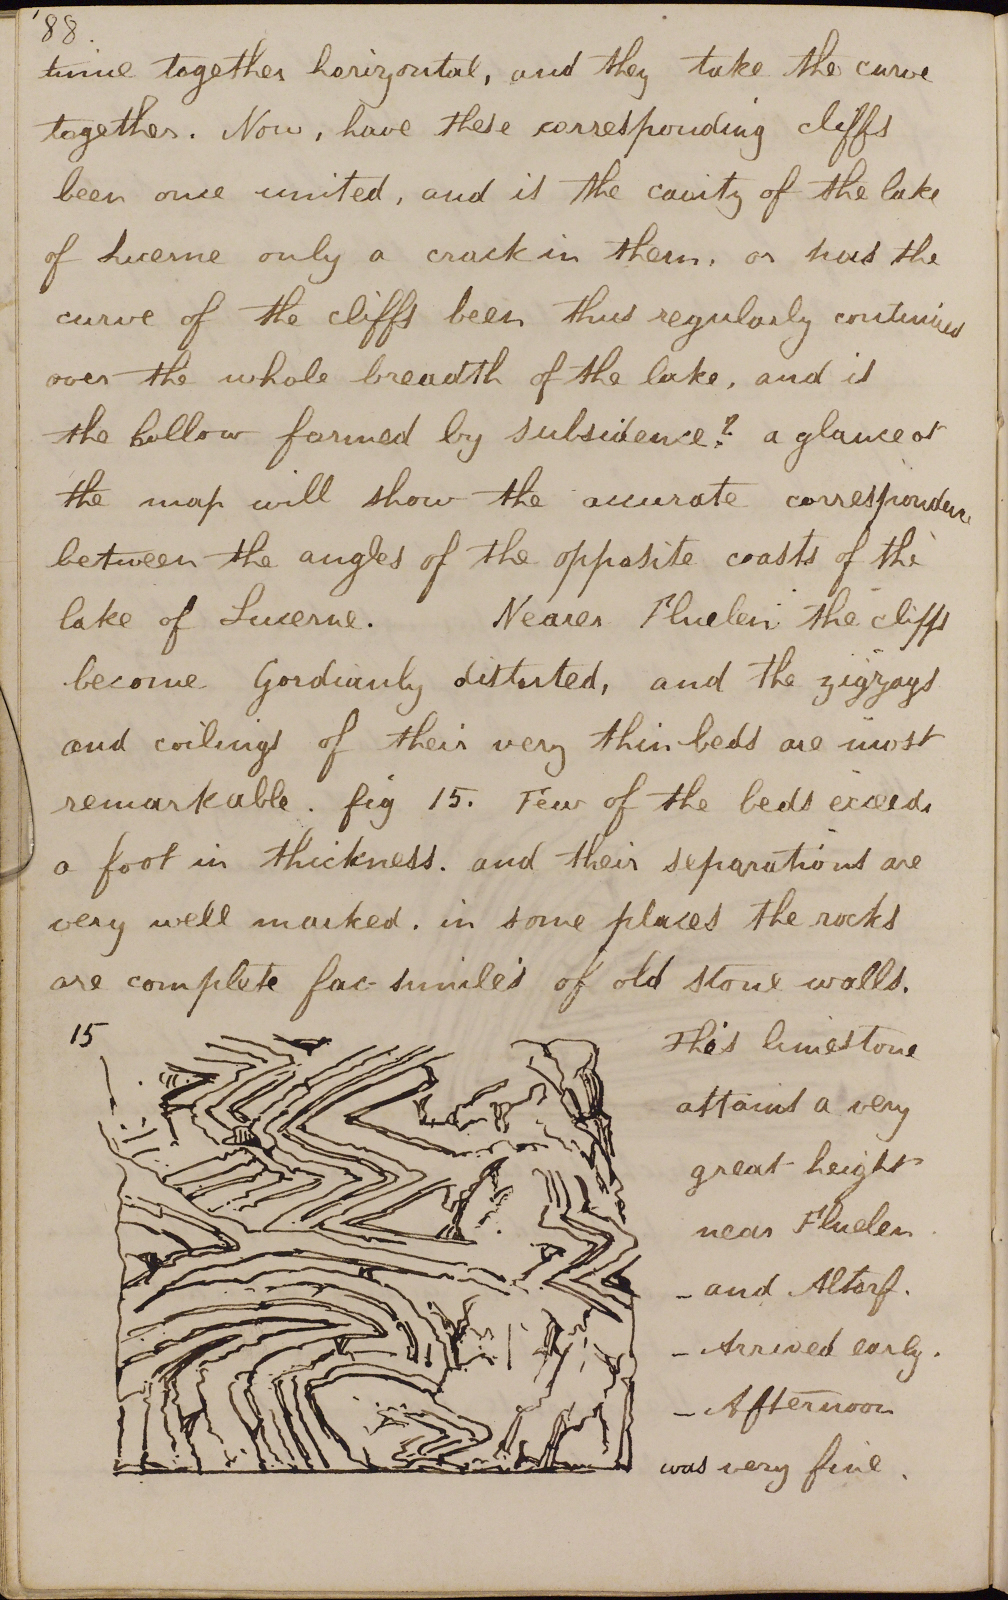 88.
time together horizontal, and they take the curve
together. Now, have these corresponding cliffs
been once united, and is the cavity of the lake
of Lucerne only a crack in them, or has the
curve of the cliffs been thus regularly continued
over the whole breadth of the lake, and is
the hollow formed by subsidence? a glance at
the map will show the accurate correspondence
between the angles of the opposite coasts of the
lake of Lucerne. Nearer Fluelen the cliffs
become Gordianly distorted, and the zigzags
and coilings of their very thin beds are most
remarkable. fig 15. Few of the beds exceeds
a foot in thickness. and their separations are
very well marked. in some places the rocks
are complete fac-simile's of old stone walls.
15
This limestone
attains a very
great height
near Fluelen
- and Altorf.
- Arrived early.
- Afternoon
was very fine.